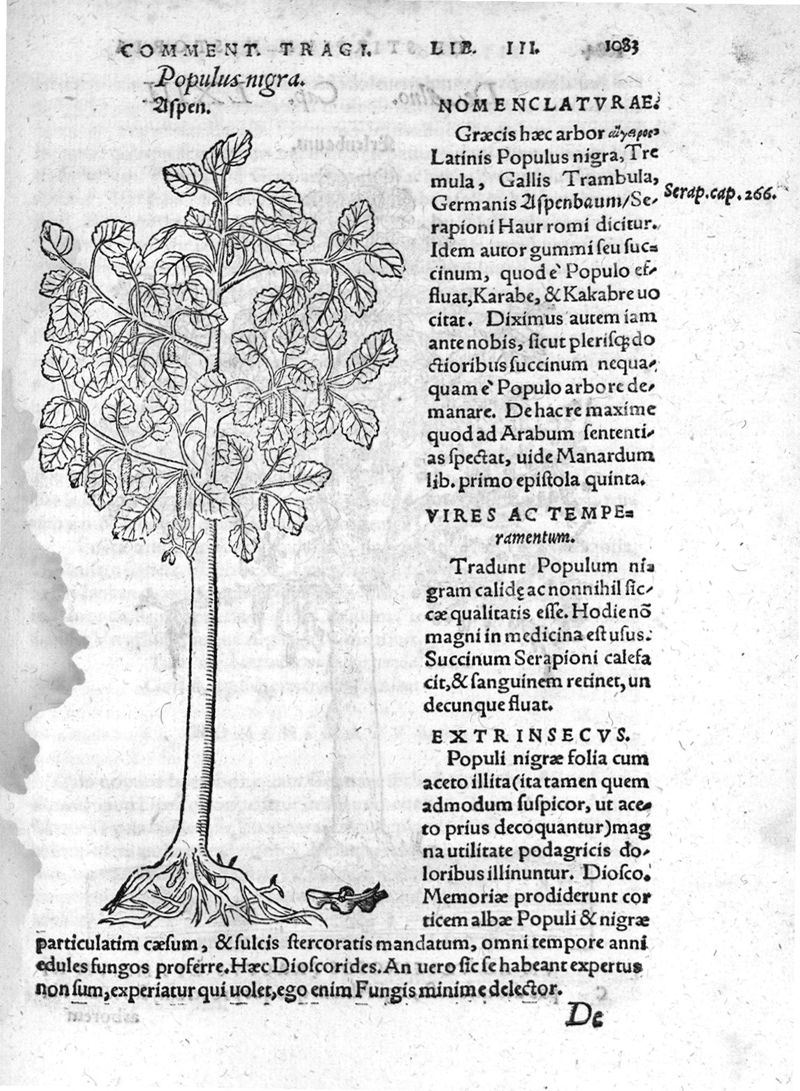 COMMENT. TRAGI. LIB. III. 1083
Populus nigra.
Aspen.
NOMENCLATVRAE.
Græcis hæc arbor αἴγειρος
Latinis Populus nigra, Tre
mula, Gallis Trambula,
Germanis Aspenbaum/Se-
rapioni Haur romi dicitur.
Serap.cap.266.
Idem autor gummi seu suc=
cinum, quod è Populo ef-
fluat, Karabe, & Kakabre uo
citat. Diximus autem iam
ante nobis, sicut plerisq; do
ctioribus succinum nequa-
quam è Populo arbore de-
manare. De hac re maxime
quod ad Arabum sententi-
as spectat, uide Manardum
lib. primo epistola quinta.
VIRES AC TEMPE=
ramentum.
Tradunt Populum ni=
gram calidę ac nonnihil sic-
cæ qualitatis esse. Hodie nō
magni in medicina est usus.
Succinum Serapioni calefa
cit, & sanguinem retinet, un
decunque fluat.
EXTRINSECVS.
Populi nigræ folia cum
aceto illita (ita tamen quem
admodum suspicor, ut ace-
to prius decoquantur) mag
na utilitate podagricis do-
loribus illinuntur. Diosco.
Memoriæ prodiderunt cor
ticem albæ Populi & nigræ
particulatim cæsum, & sulcis stercoratis mandatum, omni tempore anni
edules fungos proferre. Hæc Dioscorides. An uero sic se habeant expertus
non sum, experiatur qui uolet, ego enim Fungis minime delector.
De